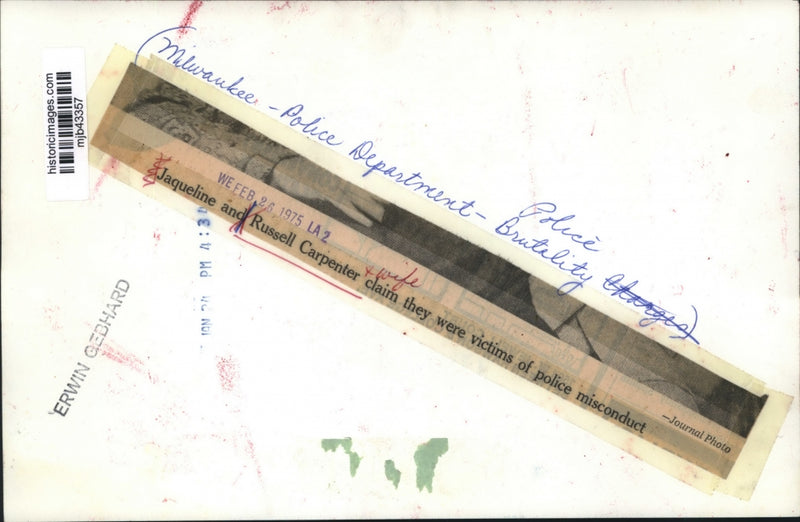 historicimages.com
mjb43357
(Milwaukee - Police Department - Police Brutality Charges)
WE FEB. 26 1975 LA 2
Jaqueline and Russell Carpenter + wife claim they were victims of police misconduct
—Journal Photo
PM 4:3
ERWIN GEBHARD